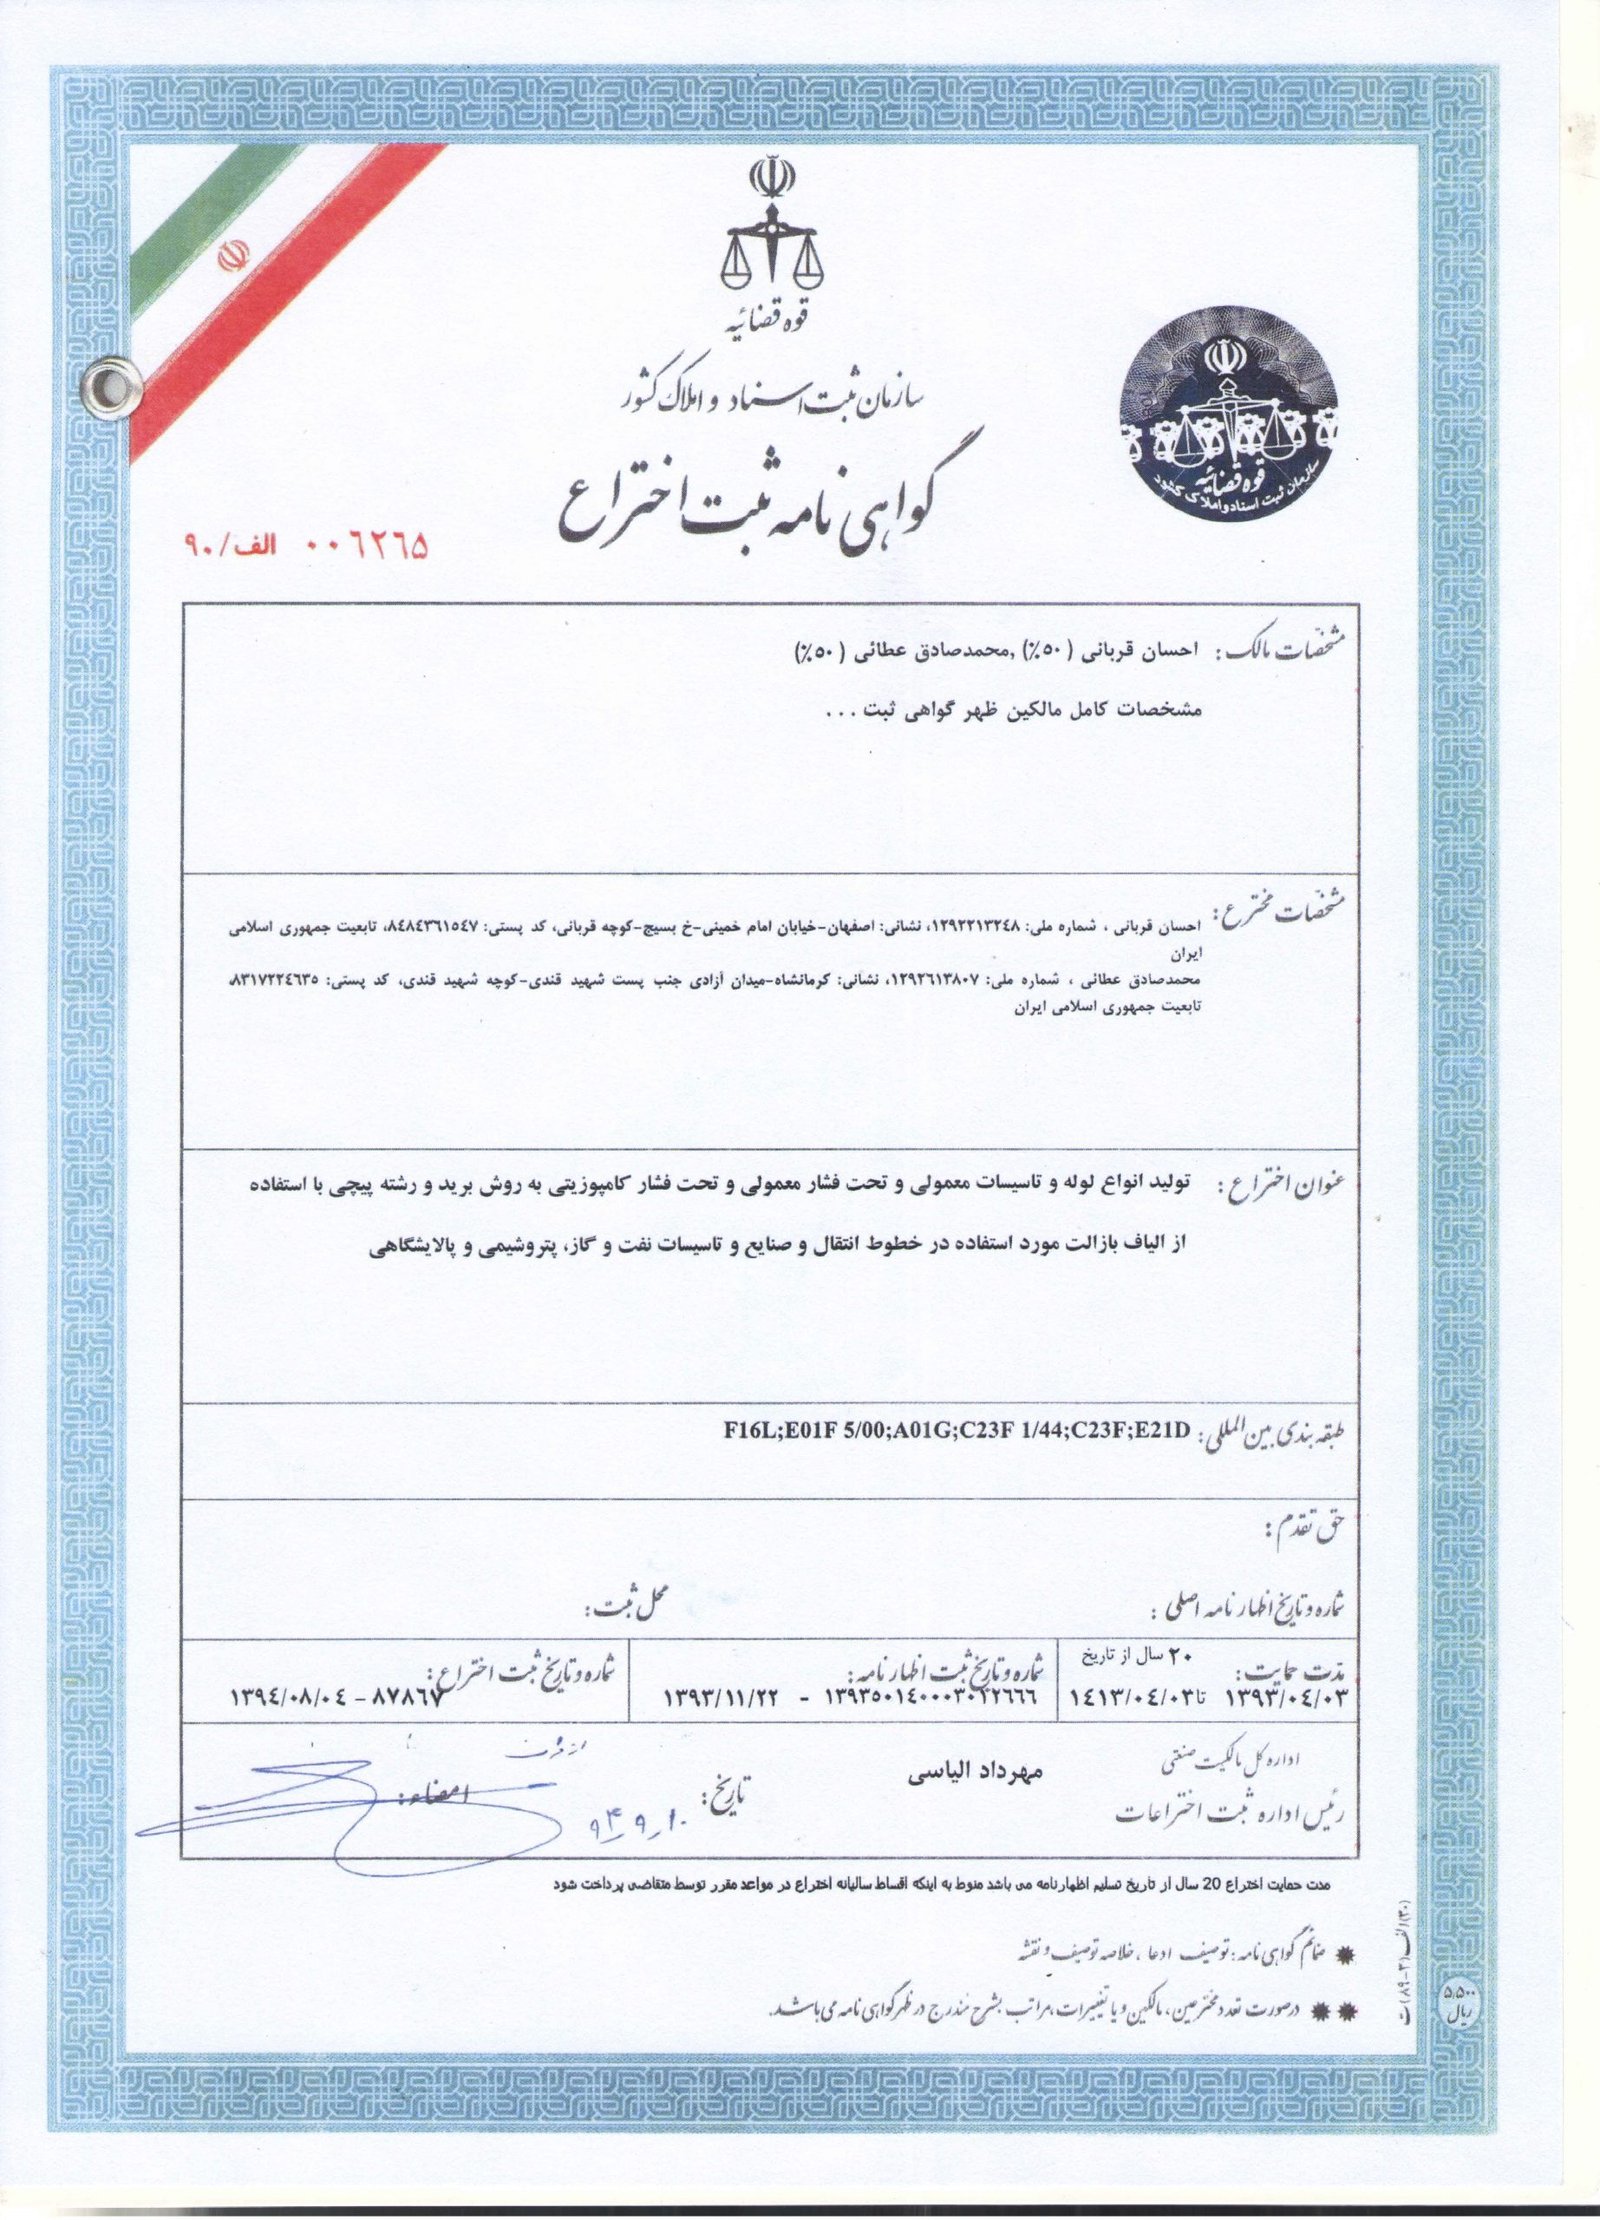 قوه قضائیه
سازمان ثبت اسناد و املاک کشور
گواهی نامه ثبت اختراع
قوه قضائیه
سازمان ثبت اسناد و املاک کشور
۰۰٦٢٦٥ الف/۹۰
مشخصات مالک: احسان قربانی ( ۵۰٪) ,محمدصادق عطائی ( ۵۰٪)
مشخصات کامل مالکین ظهر گواهی ثبت ...
مشخصات مخترع: احسان قربانی ، شماره ملی: ۱۲۹۲۲۱۳۲٤۸، نشانی: اصفهان-خیابان امام خمینی-خ بسیج-کوچه قربانی، کد پستی: ۸٤۸٤۳٦۱٥٤۷، تابعیت جمهوری اسلامی
ایران
محمدصادق عطائی ، شماره ملی: ۱۲۹۲٦۱۳۸۰۷، نشانی: کرمانشاه-میدان آزادی جنب پست شهید قندی-کوچه شهید قندی، کد پستی: ۸۳۱۷۲۲٤٦۳٥
تابعیت جمهوری اسلامی ایران
عنوان اختراع: تولید انواع لوله و تاسیسات معمولی و تحت فشار معمولی و تحت فشار کامپوزیتی به روش برید و رشته پیچی با استفاده
از الیاف بازالت مورد استفاده در خطوط انتقال و صنایع و تاسیسات نفت و گاز، پتروشیمی و پالایشگاهی
طبقه بندی بین المللی: F16L;E01F 5/00;A01G;C23F 1/44;C23F;E21D
حق تقدم:
شماره و تاریخ اظهارنامه اصلی: محل ثبت:
مدت حمایت: ۲۰ سال از تاریخ
۱۳۹۳/۰٤/۰۳ تا ۱٤۱۳/۰٤/۰۳
شماره و تاریخ ثبت اظهارنامه:
۱۳۹۳٥۰۱٤۰۰۰۳۰۲۲٦٦٦ - ۱۳۹۳/۱۱/۲۲
شماره و تاریخ ثبت اختراع:
۸۷۸٦۷ - ۱۳۹٤/۰۸/۰٤
اداره کل مالکیت صنعتی
رئیس اداره ثبت اختراعات
مهرداد الیاسی
تاریخ: ۹۴٫۹٫۱۰
امضاء:
مدت حمایت اختراع 20 سال از تاریخ تسلیم اظهارنامه می باشد منوط به اینکه اقساط سالیانه اختراع در مواعد مقرر توسط متقاضی پرداخت شود
ضمائم گواهی نامه: توصیف ادعا، خلاصه توصیف و نقشه
درصورت تعدد مخترعین، مالکین و یا تغییرات، مراتب بشرح مندرج در ظهر گواهی نامه می باشد.
۵٫۵۰۰
ریال